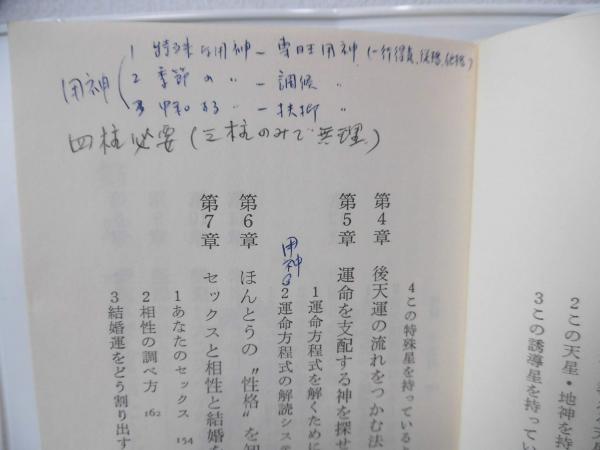 用神
1 特殊な用神 ― 専旺用神 (一行得気、従格、化格)
2 季節の 〃 ― 調候 〃
3 中和する 〃 ― 扶抑 〃
四柱必要 (三柱のみで無理)
2この天星・地神を持
3この誘導星を持ってい
4この特殊星を持っている
第4章 後天運の流れをつかむ法
第5章 運命を支配する神を探せ
1運命方程式を解くために
用神
2運命方程式の解読シス
第6章 ほんとうの〝性格〟を
第7章 セックスと相性と結婚
1あなたのセックス 154
2相性の調べ方 162
3結婚運をどう割り出す